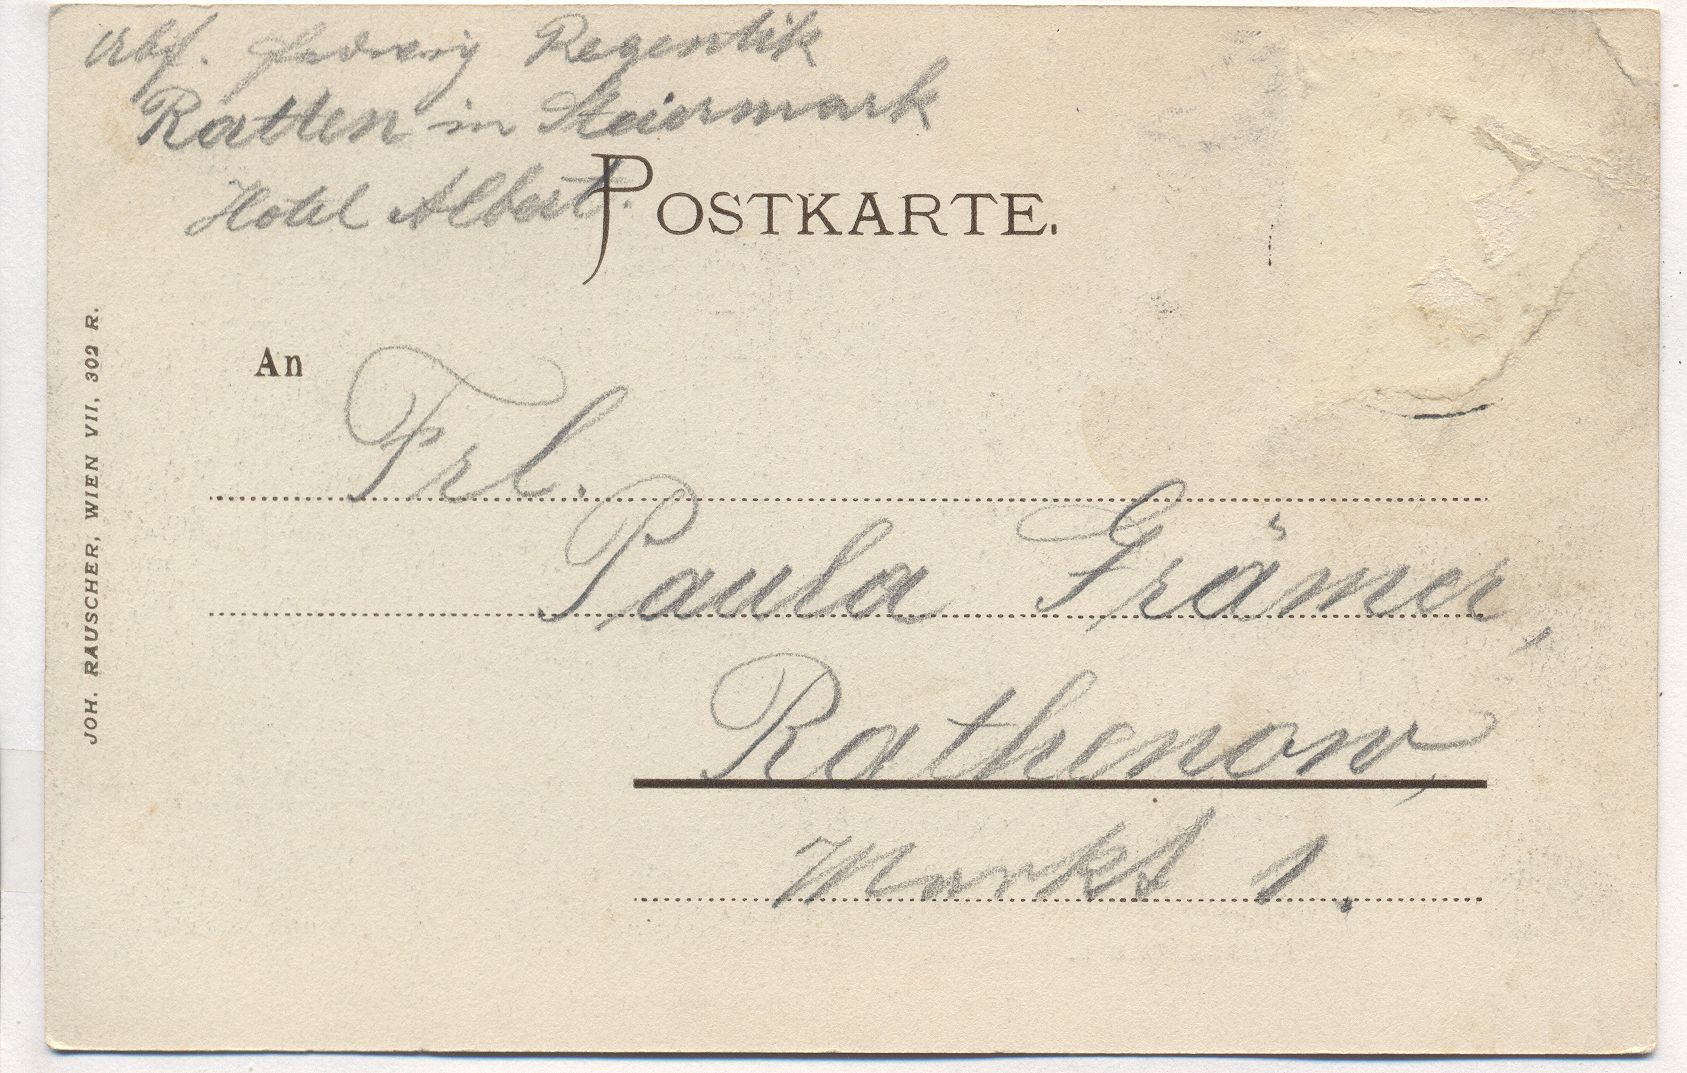 Abf. Hedwig Regentik
Ratten in Steiermark
Hotel Albert.
POSTKARTE.
JOH. RAUSCHER, WIEN VII, 302 R.
An
Frl.
Paula Grämer,
Rathenow,
Markt 1.